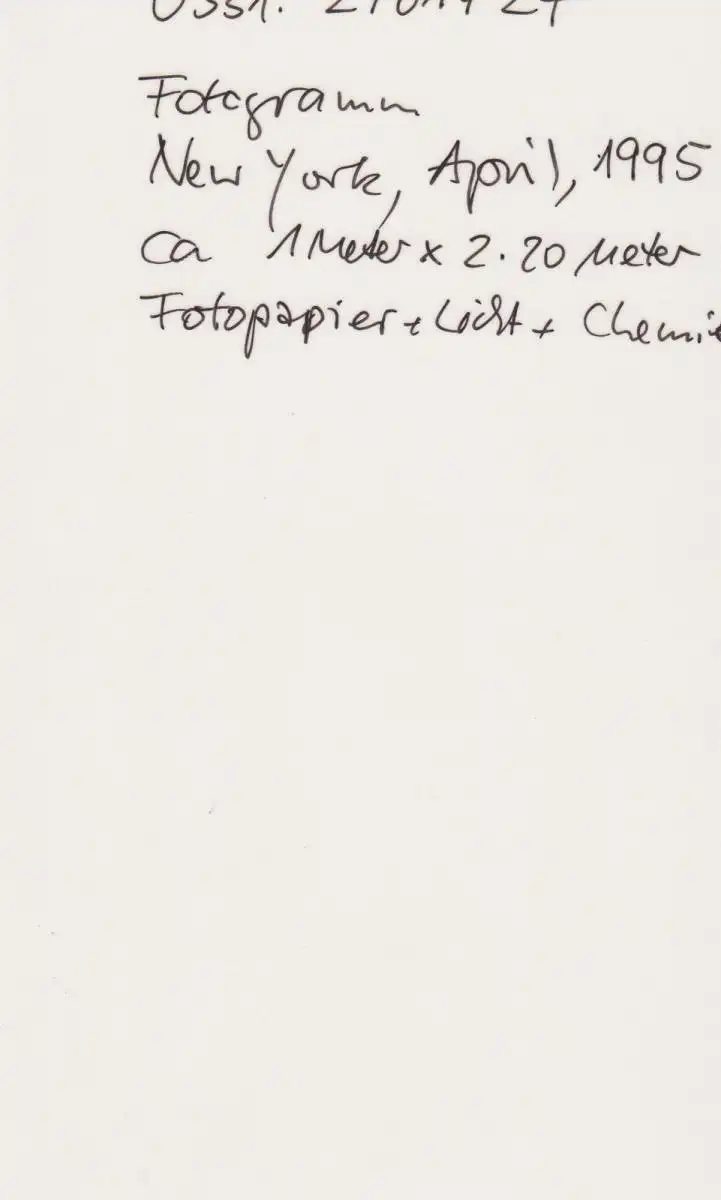 Fotogramm
New York, April, 1995
ca 1 Meter x 2.20 Meter
Fotopapier + Licht + Chemie